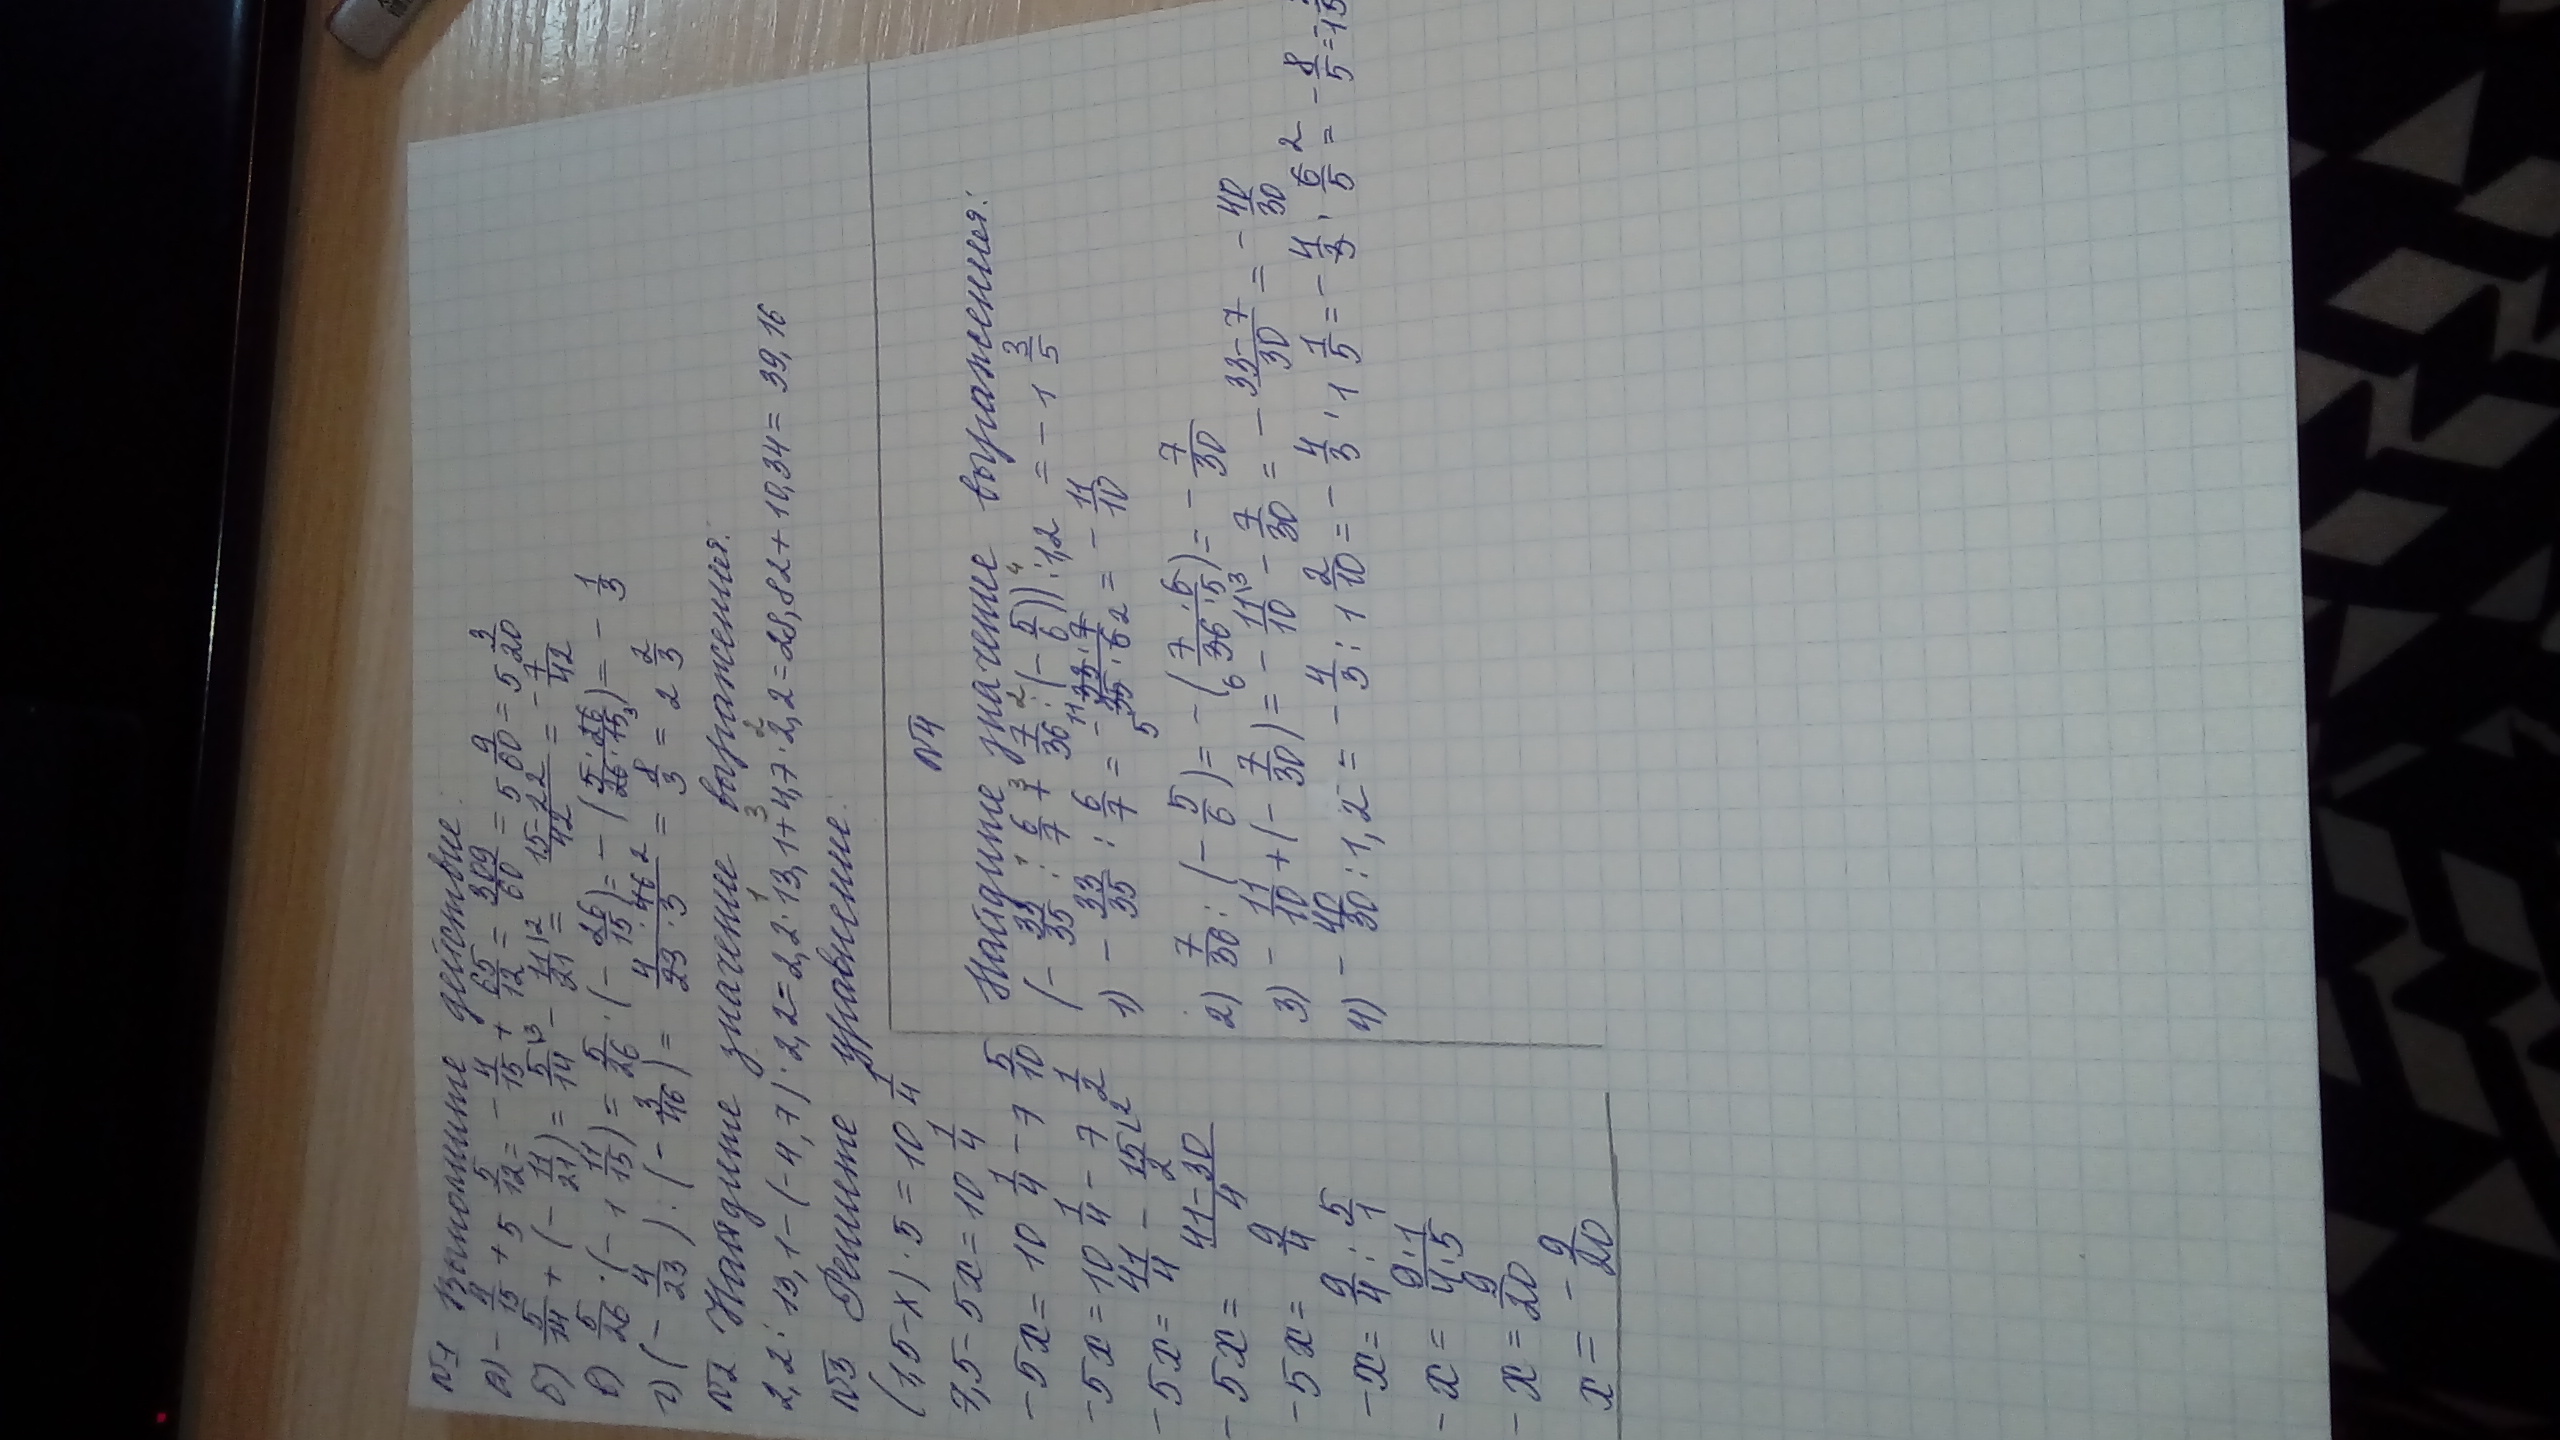 №1 Выполните действие:
а) - 4/15 + 5 5/12 = - 4/15 + 65/12 = 309/60 = 5 9/60 = 5 3/20
б) 5/14 + (- 11/21) = 5/14\3 - 11/21\2 = 15-22/42 = - 7/42
в) 5/26 · (- 1 11/15) = 5/26 · (- 26/15) = - (5·26/26·15 3) = - 1/3
г) (- 4/23) : (- 3/46) = 4·46 2/23·3 = 8/3 = 2 2/3
№2 Найдите значение выражения:
2,2 · 13,1 - (-4,7) · 2,2 = 2,2 · 13,1 + 4,7 · 2,2 = 28,82 + 10,34 = 39,16
№3 Решите уравнение:
(1,5 - x) · 5 = 10 1/4
7,5 - 5x = 10 1/4
- 5x = 10 1/4 - 7 5/10
- 5x = 10 1/4 - 7 1/2
- 5x = 41/4 - 15/2\2
- 5x = 41-30/4
- 5x = 9/4
- x = 9/4 : 5/1
- x = 9·1/4·5
- x = 9/20
x = - 9/20
№4
Найдите значение выражения:
(- 33/35 : 6/7 + 7/36 : (- 5/6)) : 1,2 = - 1 3/5
1) - 33/35 : 6/7 = - 11 33·7/5 35·6 2 = - 11/10
2) 7/36 : (- 5/6) = - (7·6/6 36·5) = - 7/30
3) - 11/10 + (- 7/30) = - 11/10\3 - 7/30 = - 33-7/30 = - 40/30
4) - 40/30 : 1,2 = - 4/3 : 1 2/10 = - 4/3 · 1 1/5 = - 4/3 · 6 2/5 = - 8/5 =